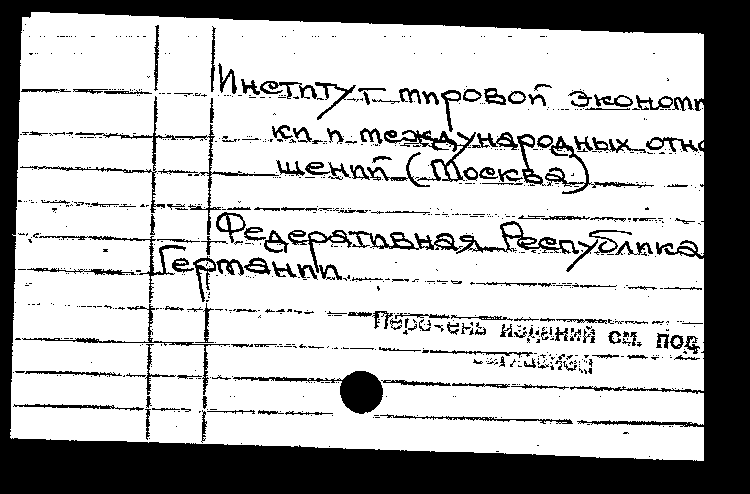 Институт мировой экономи
ки и международных отно
шений (Москва)
Федеративная Республика
Германии
Перечень изданий см. под
заглавием